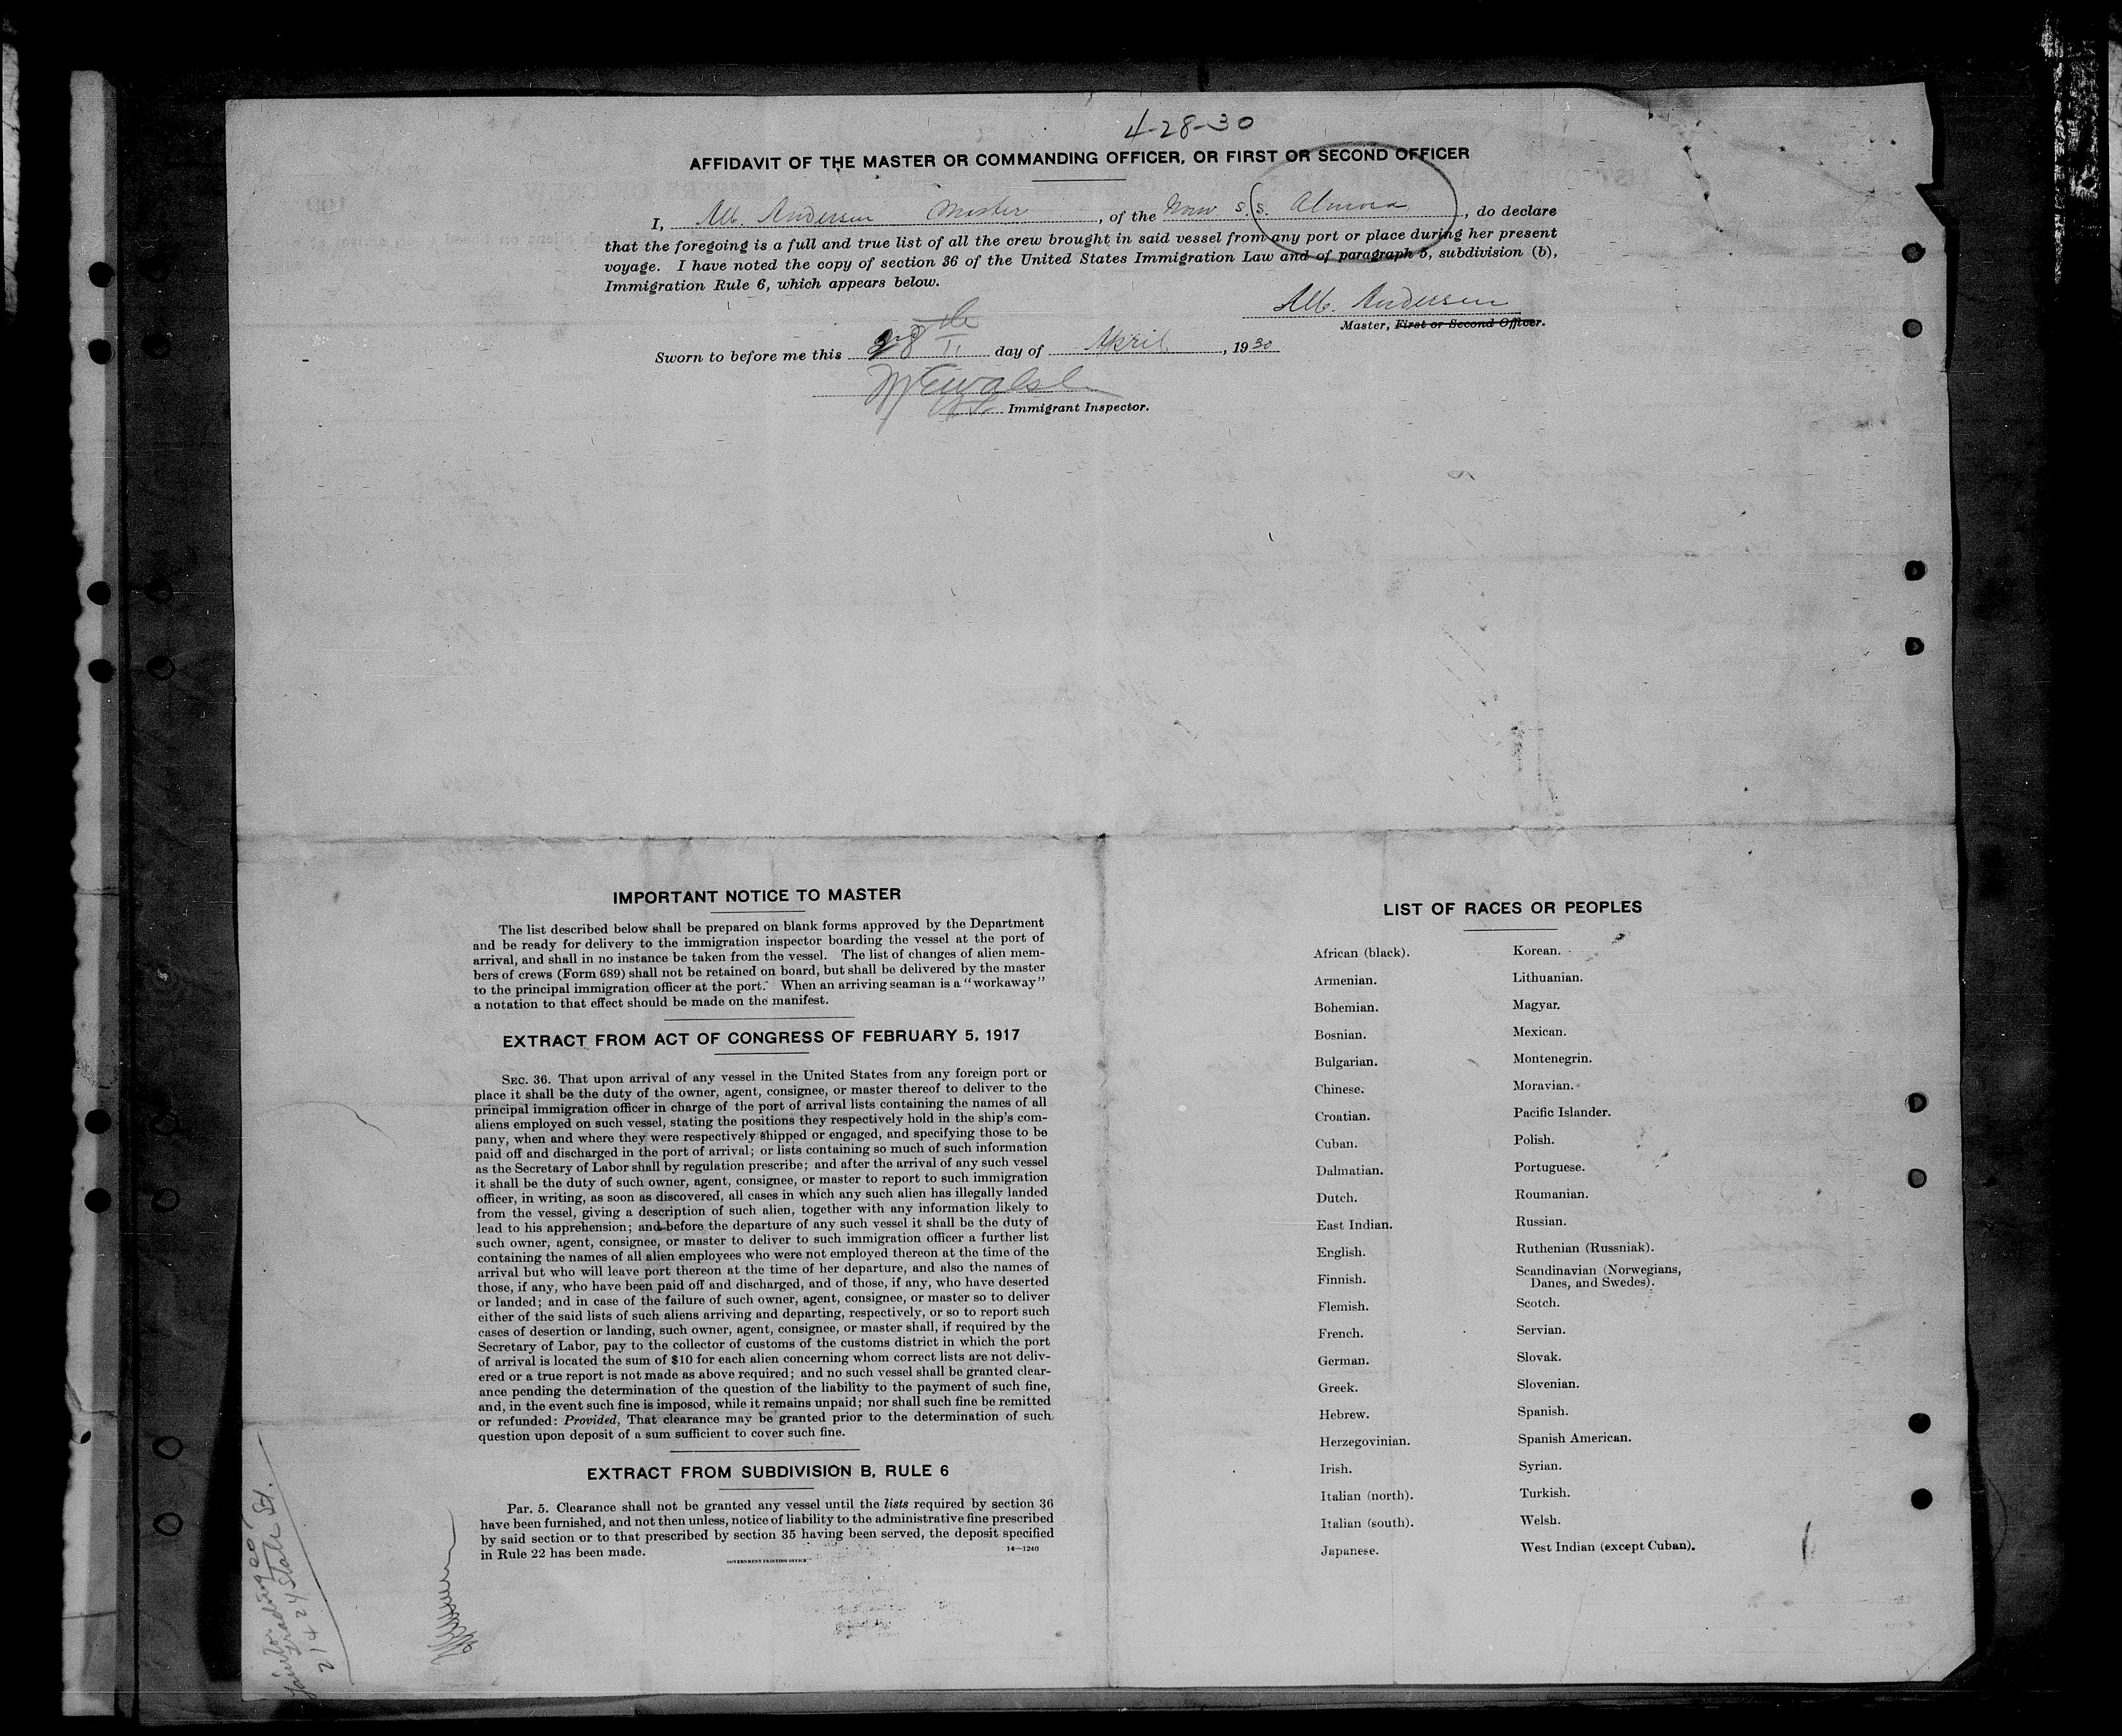 4-28-30
AFFIDAVIT OF THE MASTER OR COMMANDING OFFICER, OR FIRST OR SECOND OFFICER
I, Alb. Andersen Master, of the Norw S.S. Almora, do declare
that the foregoing is a full and true list of all the crew brought in said vessel from any port or place during her present
voyage. I have noted the copy of section 36 of the United States Immigration Law and of paragraph 5, subdivision (b),
Immigration Rule 6, which appears below.
Alb. Andersen
Master, First or Second Officer.
Sworn to before me this 28th day of April, 1930
Immigrant Inspector.
IMPORTANT NOTICE TO MASTER
The list described below shall be prepared on blank forms approved by the Department
and be ready for delivery to the immigration inspector boarding the vessel at the port of
arrival, and shall in no instance be taken from the vessel. The list of changes of alien mem-
bers of crews (Form 689) shall not be retained on board, but shall be delivered by the master
to the principal immigration officer at the port. When an arriving seaman is a "workaway"
a notation to that effect should be made on the manifest.
EXTRACT FROM ACT OF CONGRESS OF FEBRUARY 5, 1917
SEC. 36. That upon arrival of any vessel in the United States from any foreign port or
place it shall be the duty of the owner, agent, consignee, or master thereof to deliver to the
principal immigration officer in charge of the port of arrival lists containing the names of all
aliens employed on such vessel, stating the positions they respectively hold in the ship's com-
pany, when and where they were respectively shipped or engaged, and specifying those to be
paid off and discharged in the port of arrival; or lists containing so much of such information
as the Secretary of Labor shall by regulation prescribe; and after the arrival of any such vessel
it shall be the duty of such owner, agent, consignee, or master to report to such immigration
officer, in writing, as soon as discovered, all cases in which any such alien has illegally landed
from the vessel, giving a description of such alien, together with any information likely to
lead to his apprehension; and before the departure of any such vessel it shall be the duty of
such owner, agent, consignee, or master to deliver to such immigration officer a further list
containing the names of all alien employees who were not employed thereon at the time of the
arrival but who will leave port thereon at the time of her departure, and also the names of
those, if any, who have been paid off and discharged, and of those, if any, who have deserted
or landed; and in case of the failure of such owner, agent, consignee, or master so to deliver
either of the said lists of such aliens arriving and departing, respectively, or so to report such
cases of desertion or landing, such owner, agent, consignee, or master shall, if required by the
Secretary of Labor, pay to the collector of customs of the customs district in which the port
of arrival is located the sum of $10 for each alien concerning whom correct lists are not deliv-
ered or a true report is not made as above required; and no such vessel shall be granted clear-
ance pending the determination of the question of the liability to the payment of such fine,
and, in the event such fine is imposed, while it remains unpaid; nor shall such fine be remitted
or refunded: Provided, That clearance may be granted prior to the determination of such
question upon deposit of a sum sufficient to cover such fine.
EXTRACT FROM SUBDIVISION B, RULE 6
Par. 5. Clearance shall not be granted any vessel until the lists required by section 36
have been furnished, and not then unless, notice of liability to the administrative fine prescribed
by said section or to that prescribed by section 35 having been served, the deposit specified
in Rule 22 has been made.
14—1240
GOVERNMENT PRINTING OFFICE
LIST OF RACES OR PEOPLES
African (black).
Armenian.
Bohemian.
Bosnian.
Bulgarian.
Chinese.
Croatian.
Cuban.
Dalmatian.
Dutch.
East Indian.
English.
Finnish.
Flemish.
French.
German.
Greek.
Hebrew.
Herzegovinian.
Irish.
Italian (north).
Italian (south).
Japanese.
Korean.
Lithuanian.
Magyar.
Mexican.
Montenegrin.
Moravian.
Pacific Islander.
Polish.
Portuguese.
Roumanian.
Russian.
Ruthenian (Russniak).
Scandinavian (Norwegians,
Danes, and Swedes).
Scotch.
Servian.
Slovak.
Slovenian.
Spanish.
Spanish American.
Syrian.
Turkish.
Welsh.
West Indian (except Cuban).
24 State St.